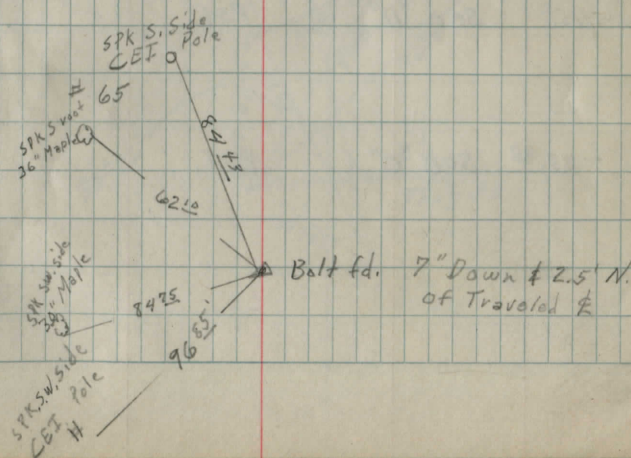 SPK S. Side
CEI Pole
# 65
SPK S root
36" Maple
84 43
62 10
Bolt fd. 7" Down & 2.5' N.
of Traveled ℄
SPK SW. Side
Maple
84 25
96 85'
SPK S.W. Side
CEI Pole
#